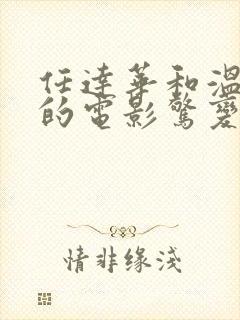 任達華和溫
的電影驚變
情非缘淺